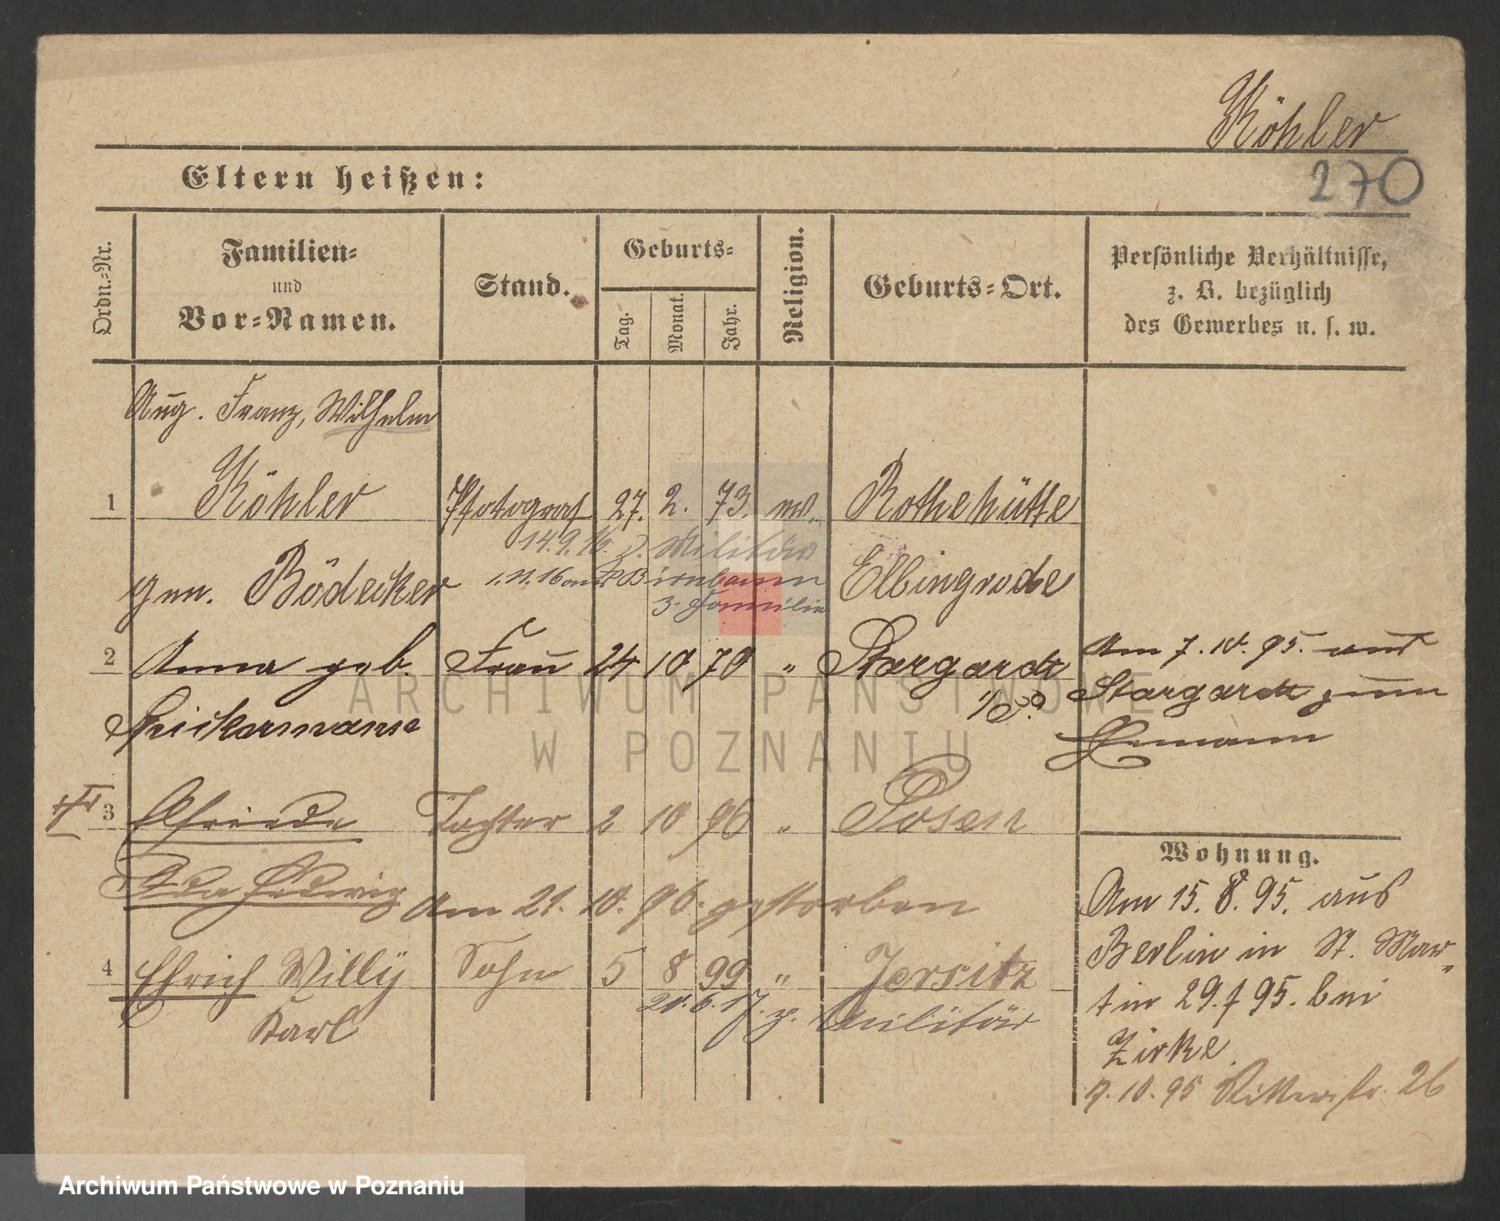 Köhler
270
Eltern heißen:
Ordn.=Nr.
Familien=
und
Vor=Namen.
Stand.
Geburts=
Tag.
Monat.
Jahr.
Religion.
Geburts=Ort.
Persönliche Verhältnisse,
z. B. bezüglich
des Gewerbes u. s. w.
Aug. Franz, Wilhelm
1 Köhler Photograf 27. 2. 73. ev. Rothehütte
14.9.16. z. Militär
gen. Bödecker 1.11.16 Birnbaum Elbingrode
z. Familie
2 Anna geb. Frau 24 10 70 " Stargardt Am 7.10.95. aus
i/P. Stargardt zum
Ehemann
3 Elfriede Tochter 2 10 96 " Posen
Ida Hedwig Am 21. 10. 96. gestorben
4 Ehrich Willy Sohn 5 8 99 " Jersitz
Karl 21.6.17. z. Militär
Wohnung.
Am 15. 8. 95. aus
Berlin in St. Mar=
tin 29. f 95. bei
Zirke.
7.10.95 Ritterstr. 26
ARCHIWUM PAŃSTWOWE
W POZNANIU
Archiwum Państwowe w Poznaniu